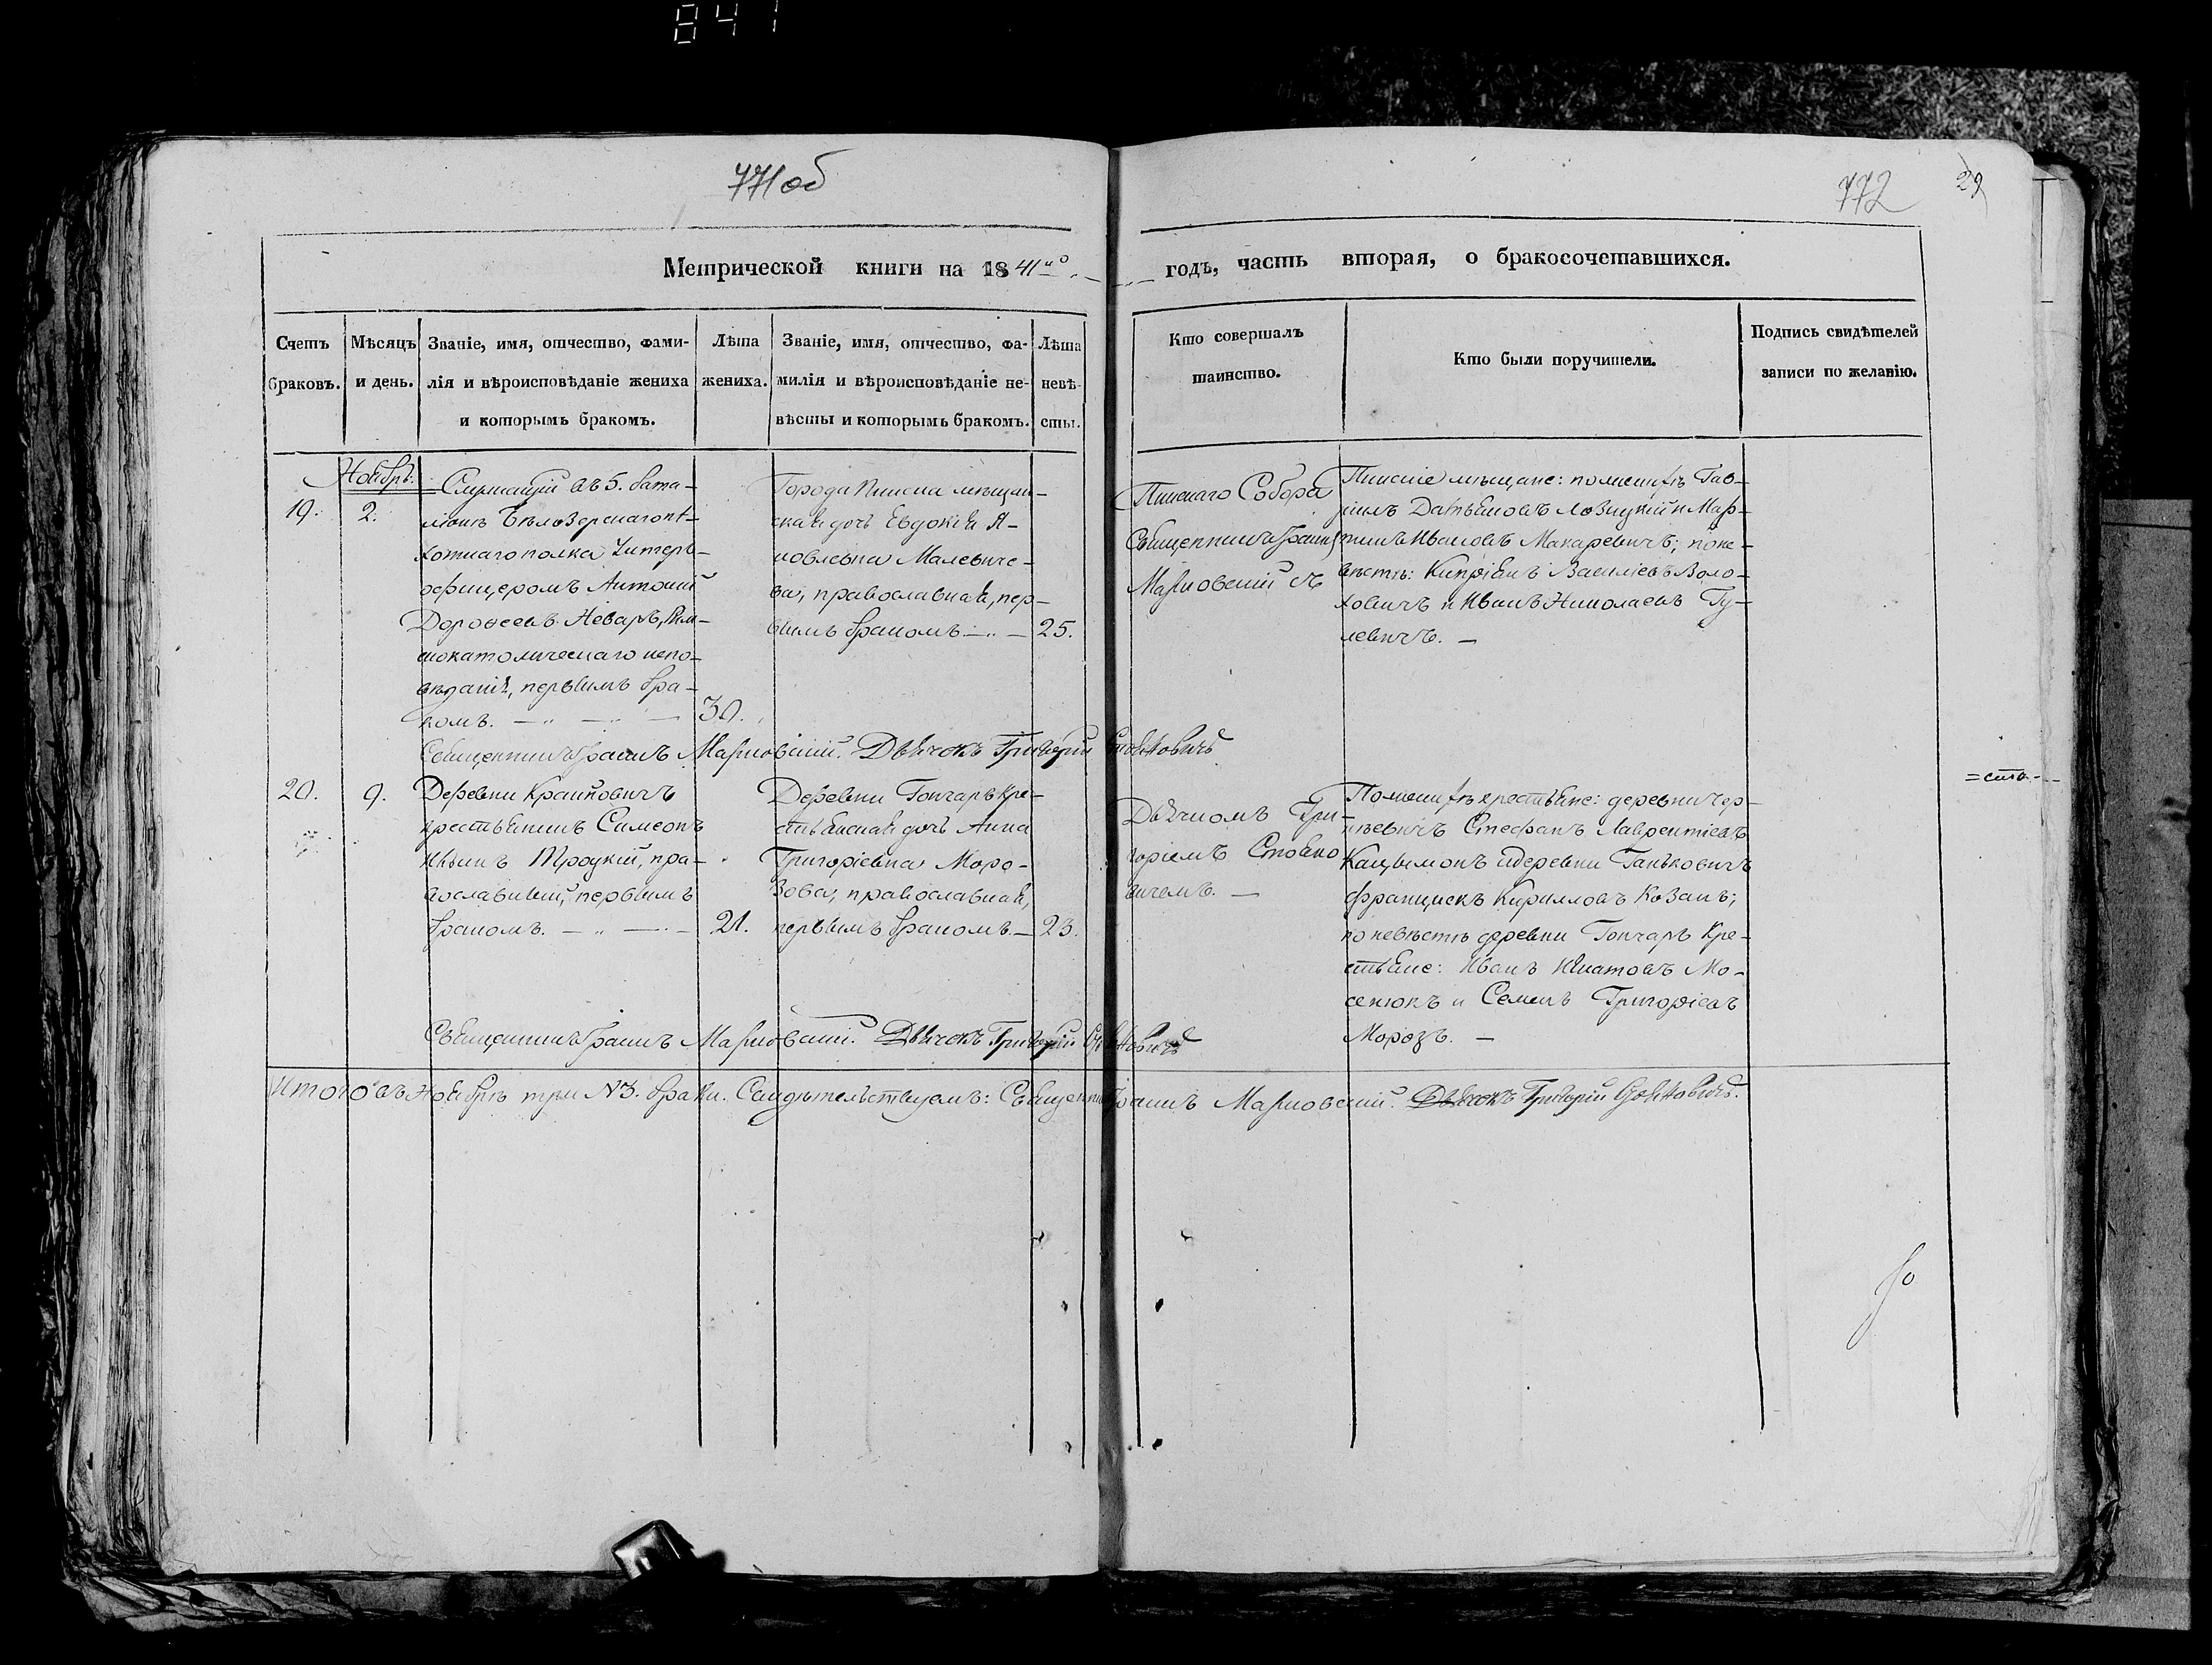 841
771об
772
29
Метрической книги на 1841го
годъ, часть вторая, о бракосочетавшихся.
Счетъ
браковъ.
Мѣсяцъ
и день.
Званіе, имя, отчество, фами-
лія и вѣроисповѣданіе жениха
и которымъ бракомъ.
Лѣта
жениха.
Званіе, имя, отчество, фа-
милія и вѣроисповѣданіе не-
вѣсты и которымъ бракомъ.
Лѣта
невѣ-
сты.
Кто совершалъ
таинство.
Кто были поручители.
Подпись свидѣтелей
записи по желанію.
Ноябрь.
19.
2.
Служащій въ 5. бата-
ліонѣ Бѣлозерскаго пѣ-
хотнаго полка Унтеръ-
офицеромъ Антоній
Дороѳеевъ Неваръ, Рим-
скокатолическаго испо-
вѣданія, первымъ бра-
комъ.
30.
Города Пинска мѣщан-
ская дочь Евдокія Я-
ковлевна Малевиче-
ва, православная, пер-
вымъ бракомъ.
25.
Пинскаго Собора
Священникъ Іоаннъ
Марковскій съ
Пинскіе мѣщане: по женихѣ Гав-
ріилъ Даміановъ Лозицкій и Мар-
тинъ Ивановъ Макаревичъ; по не-
вѣстѣ: Кипріянъ Василіевъ Воло-
ховичъ и Иванъ Николаевъ Гу-
левичъ.
Священникъ Іоаннъ Марковскій. Дьячокъ Григорій Стояновичъ
20.
9.
Деревни Крайновичъ
крестьянинъ Симеонъ
Ивановъ Троцкій, пра-
вославный, первымъ
бракомъ.
21.
Деревни Гончаръ кре-
стьянская дочь Анна
Григоріевна Моро-
зова, православная,
первымъ бракомъ.
23.
Дьячкомъ Гри-
горіемъ Стояно
вичемъ.
По женихѣ крестьяне: деревни Чер-
нѣевичъ Стефанъ Лаврентіевъ
и деревни Ганьковичъ
Францискъ Кирилловъ Козакъ;
по невѣстѣ деревни Гончаръ кре-
стьяне: Иванъ Игнатовъ Мо-
сенюкъ и Семенъ Григоріевъ
Морозъ.
=ста-
Священникъ Іоаннъ Марковскій. Дьячокъ Григорій Стояновичъ
Итого въ Ноябрѣ три №3. браки. Свидѣтельствуемъ: Священникъ Іоаннъ Марковскій. Дьячокъ Григорій Стояновичъ.